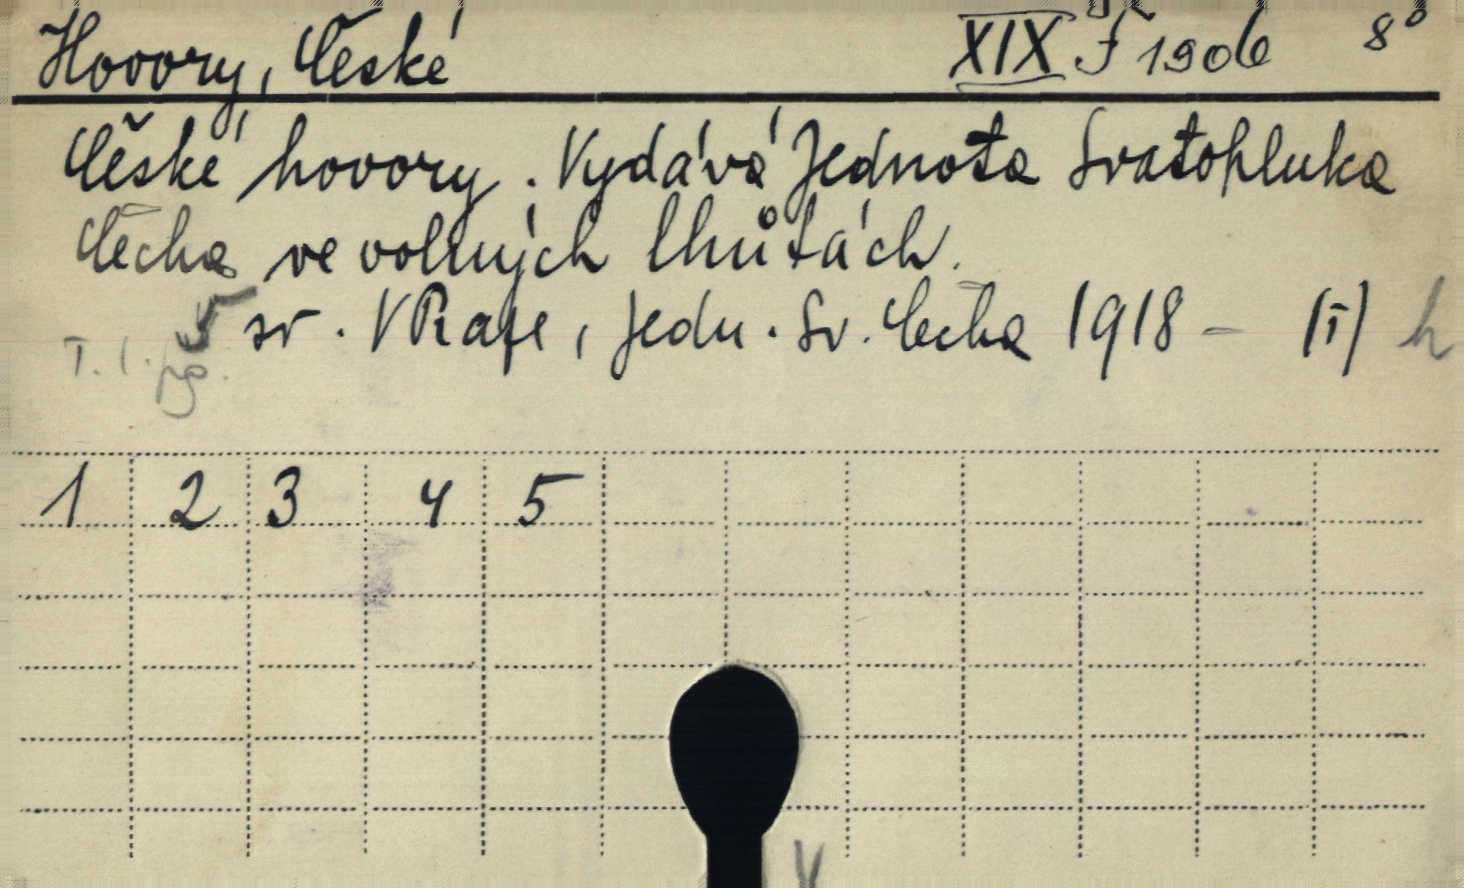 Hovory, České XIX F 1906 8°
České hovory. Vydává Jednota Svatopluka
Čecha ve volných lhůtách.
5 sv. V Praze, Jedn. Sv. Čecha 1918 – (I) h
T. 1.
1 2 3 4 5